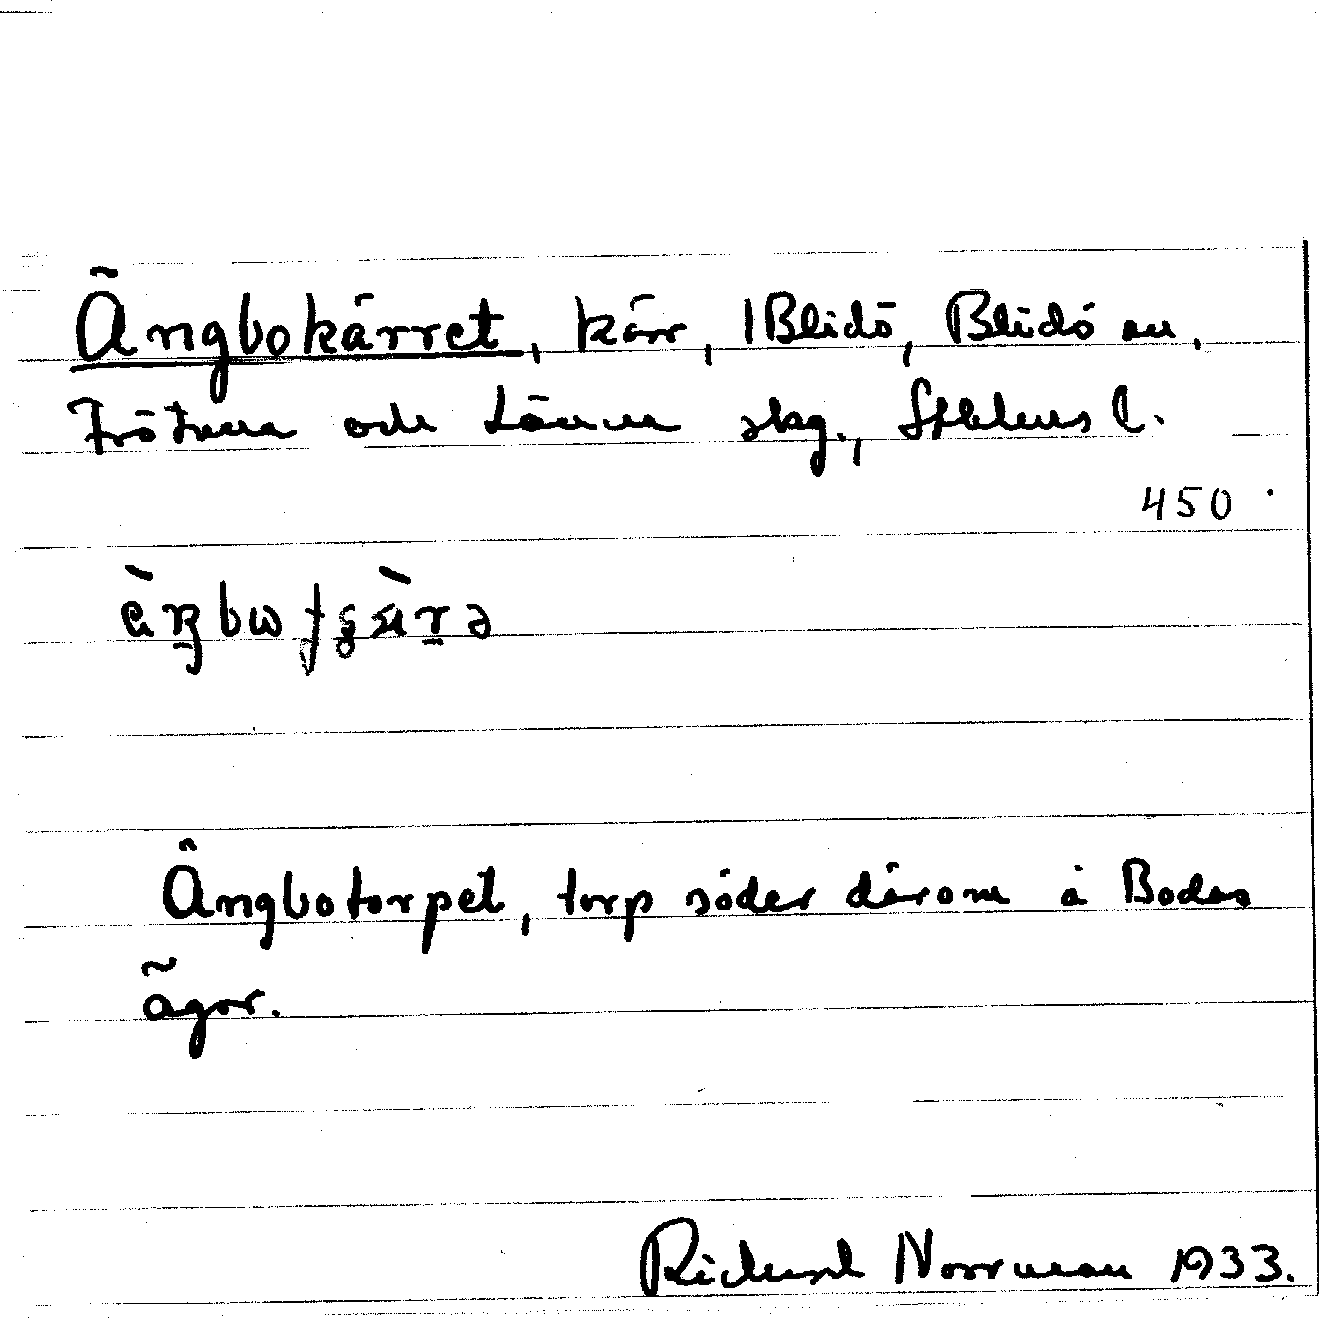 Ängbokärret, kärr, Blidö, Blidö sn,
Frötuna och Länna skg., Sthlms l.
450
Ängbotorpet, torp söder därom å Bodas
ägor.
Richard Norrman 1933.